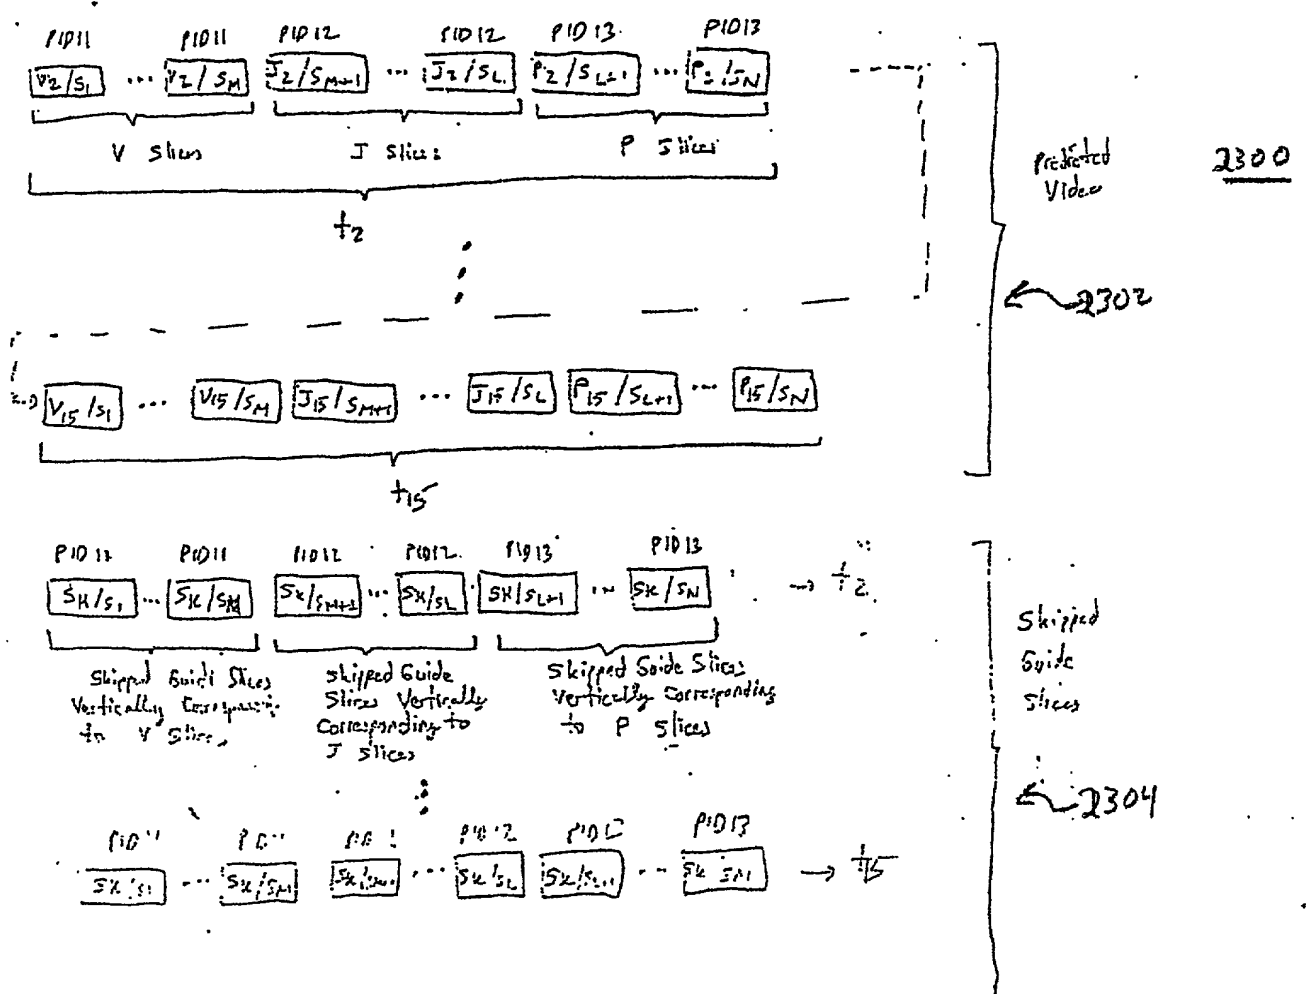 PID11 PID11 PID12 PID12 PID13 PID13
V2/S1 ... V2/SM J2/SM+1 ... J2/SL P2/SL+1 ... P2/SN
V Slices J Slices P Slices
t2
Predicted
Video
2300
2302
V15/S1 ... V15/SM J15/SM+1 ... J15/SL P15/SL+1 ... P15/SN
t15
PID11 PID11 PID12 PID12 PID13 PID13
SK/S1 ... SK/SM SK/SM+1 ... SK/SL SK/SL+1 ... SK/SN → t2
Skipped Guide Slices
Vertically Corresponding
to V Slices
Skipped Guide
Slices Vertically
Corresponding to
J Slices
Skipped Guide Slices
Vertically Corresponding
to P Slices
Skipped
Guide
Slices
2304
PID12 PID13
SK/S1 ... SK/SM ... SK/SL SK/SL+1 ... → t15